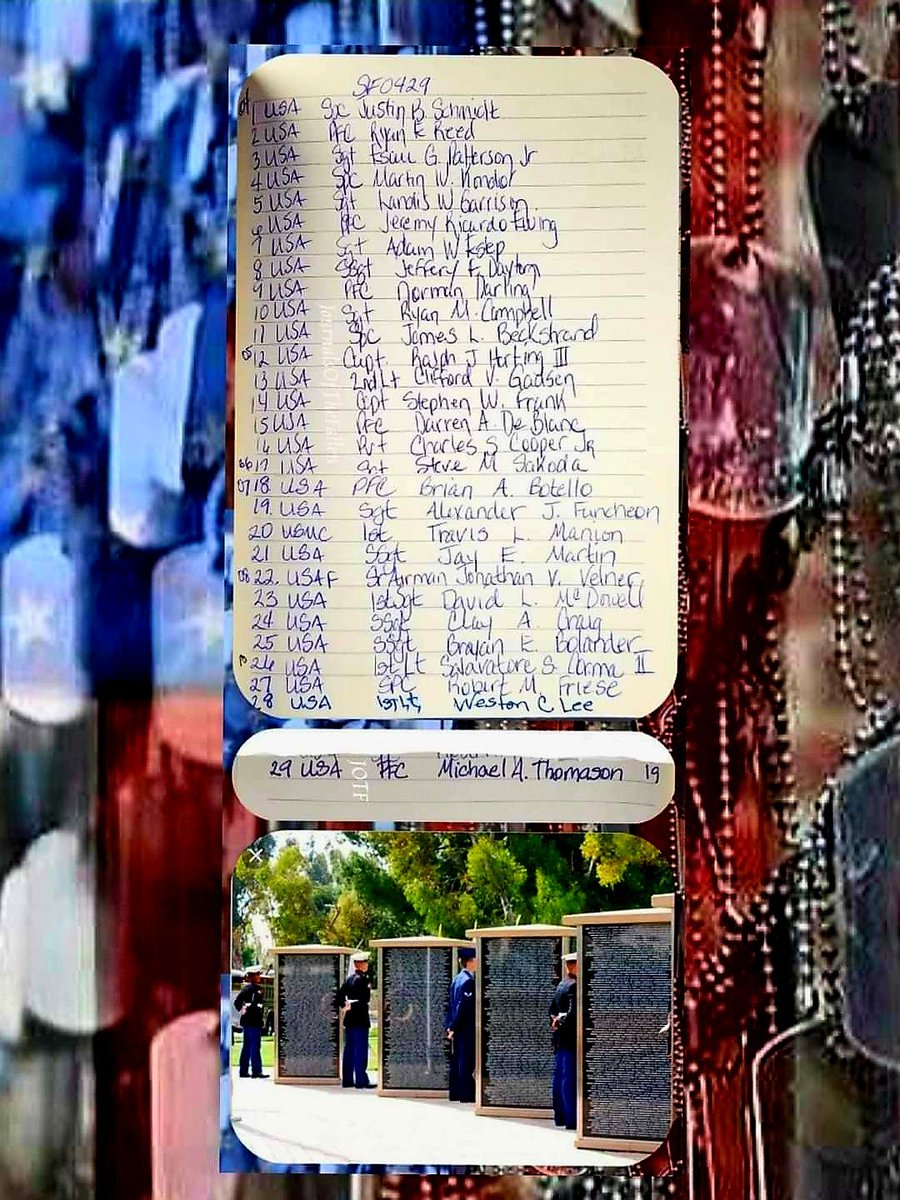 SF0429
04 1 USA Spc Justin B Schmidt
2 USA PFC Ryan E Reed
3 USA Sgt Esau G. Patterson Jr
4 USA Spc Martin W. Kondor
5 USA Sgt Landis W Garrison
6 USA PFC Jeremy Ricardo Ewing
7 USA Sgt Adam W Estep
8 USA SSgt Jeffery F. Dayton
9 USA PFC Norman Darling
10 USA Sgt Ryan M. Campbell
11 USA Spc James L. Beckstrand
05 12 USA Capt Ralph J Harting III
13 USA 2nd Lt Clifford V. Gadsen
14 USA Cpt Stephen W. Frank
15 USA PFC Darren A. De Blanc
16 USA Pvt Charles S Cooper Jr
06 17 USA Sgt Steve M Sakoda
07 18 USA PFC Brian A. Botello
19. USA Sgt Alexander J. Funcheon
20 USMC 1st Travis L. Manion
21 USA SSgt Jay E. Martin
08 22. USAF Sr Airman Jonathan V. Velner
23 USA 1stSgt David L. McDowell
24 USA SSgt Clay A. Craig
25 USA SSgt Bryan E. Bolander
10 26 USA 1st Lt Salvatore S Corma II
27 USA SPC Robert M. Friese
28 USA 1st Lt, Weston C Lee
29 USA PFC Michael A. Thomason 19
IOTF